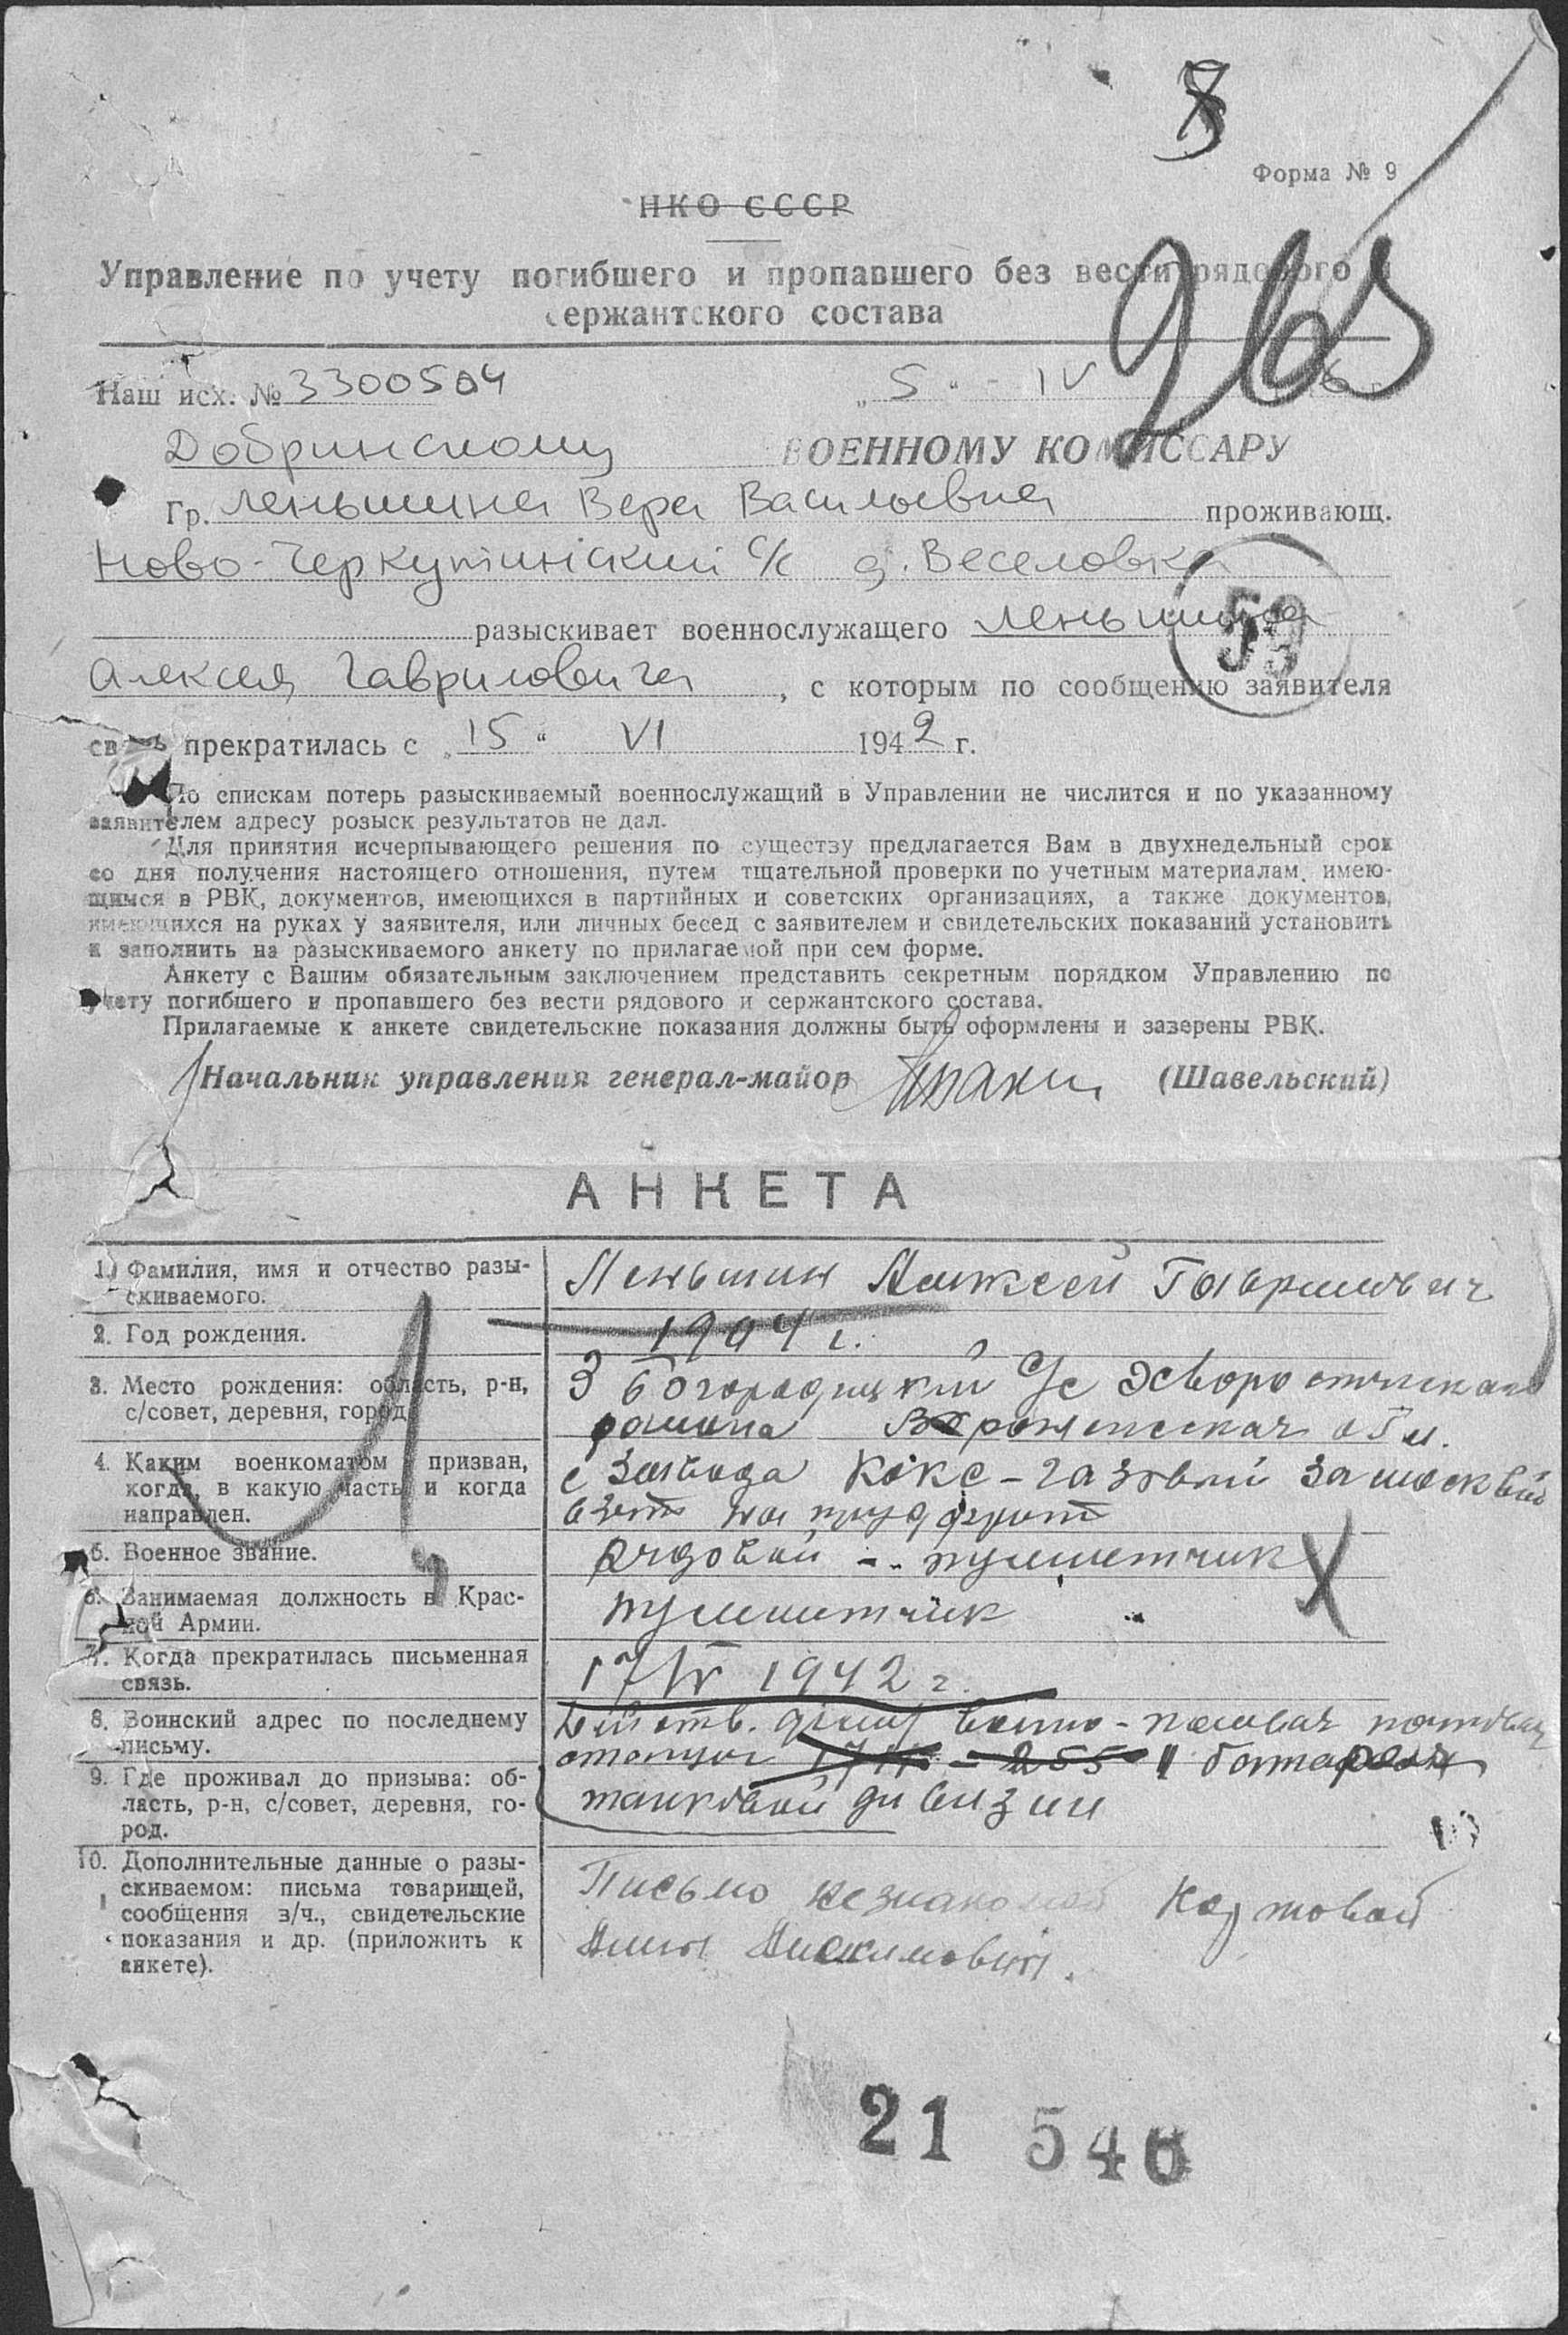 8
Форма № 9
НКО СССР
Управление по учету погибшего и пропавшего без вести рядового и
сержантского состава
Наш исх. № 3300504 „5“ - IV 6 г.
Добринскому ВОЕННОМУ КОМИССАРУ
Гр. Леньшина Вера Васильевна проживающ.
Ново-Черкутинский с/с д. Веселовка
59
разыскивает военнослужащего Леньшина
Алексея Гавриловича, с которым по сообщению заявителя
связь прекратилась с „15“ VI 1942 г.
По спискам потерь разыскиваемый военнослужащий в Управлении не числится и по указанному
заявителем адресу розыск результатов не дал.
Для принятия исчерпывающего решения по существу предлагается Вам в двухнедельный срок
со дня получения настоящего отношения, путем тщательной проверки по учетным материалам, имею-
щимся в РВК, документов, имеющихся в партийных и советских организациях, а также документов,
имеющихся на руках у заявителя, или личных бесед с заявителем и свидетельских показаний установить
и заполнить на разыскиваемого анкету по прилагаемой при сем форме.
Анкету с Вашим обязательным заключением представить секретным порядком Управлению по
учету погибшего и пропавшего без вести рядового и сержантского состава.
Прилагаемые к анкете свидетельские показания должны быть оформлены и заверены РВК.
Начальник управления генерал-майор (Шавельский)
АНКЕТА
1. Фамилия, имя и отчество разы-
скиваемого.
Леньшин Алексей Гаврилович
2. Год рождения.
1904 г.
3. Место рождения: область, р-н,
с/совет, деревня, город.
3 Богородицкий с/с Хворостянского
района Воронежская обл.
4. Каким военкоматом призван,
когда, в какую часть и когда
направлен.
с завода Кокс-газовый за москвой
взят на трудфронт
5. Военное звание.
Рядовой - пулеметчик
6. Занимаемая должность в Крас-
ной Армии.
пулеметчик
7. Когда прекратилась письменная
связь.
17/IV 1942 г.
8. Воинский адрес по последнему
письму.
Действ. армия военно-полевая почтовая
станция 255 батарея
9. Где проживал до призыва: об-
ласть, р-н, с/совет, деревня, го-
род.
танковой дивизии
10. Дополнительные данные о разы-
скиваемом: письма товарищей,
сообщения з/ч., свидетельские
показания и др. (приложить к
анкете).
Письмо незнакомой
21 546